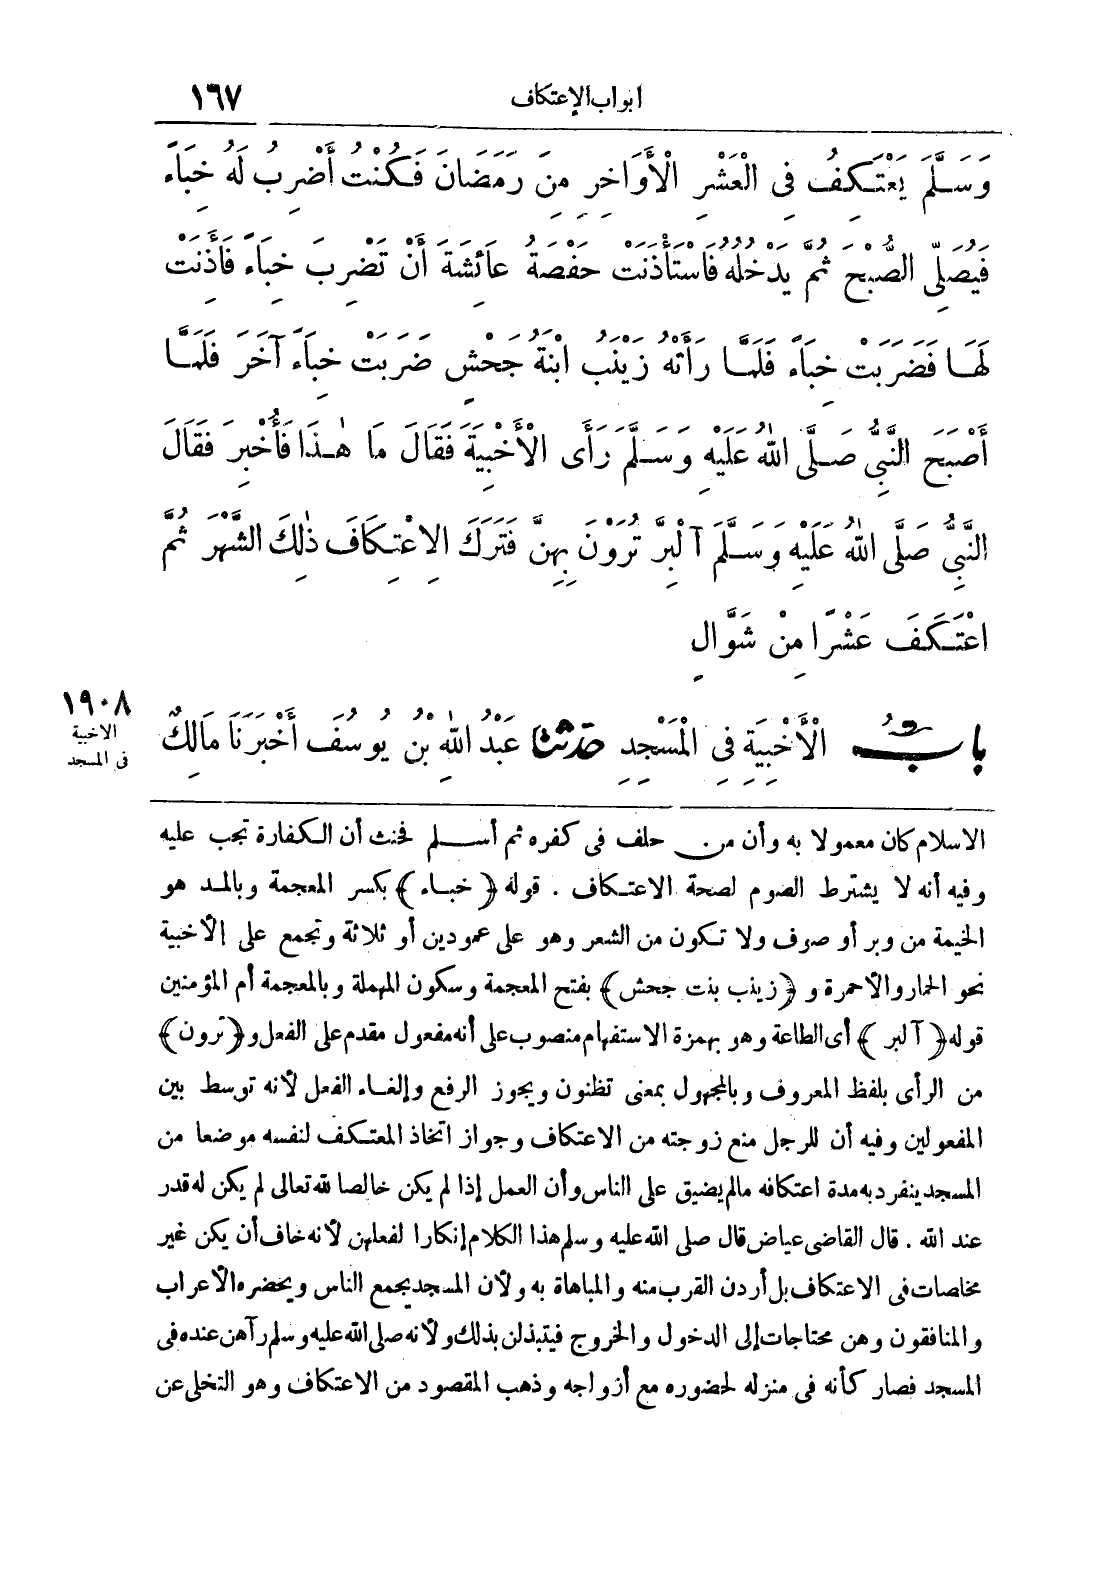 ابواب الإعتكاف ١٦٧
وَسَلَّمَ يَعْتَكِفُ فِي الْعَشْرِ الْأَوَاخِرِ مِنَ رَمَضَانَ فَكُنْتُ أَضْرِبُ لَهُ خِبَاءً
فَيُصَلِّي الصُّبْحَ ثُمَّ يَدْخُلُهُ فَاسْتَأْذَنَتْ حَفْصَةُ عَائِشَةَ أَنْ تَضْرِبَ خِبَاءً فَأَذِنَتْ
لَهَا فَضَرَبَتْ خِبَاءً فَلَمَّا رَأَتْهُ زَيْنَبُ ابْنَةُ جَحْشٍ ضَرَبَتْ خِبَاءً آخَرَ فَلَمَّا
أَصْبَحَ النَّبِيُّ صَلَّى اللهُ عَلَيْهِ وَسَلَّمَ رَأَى الْأَخْبِيَةَ فَقَالَ مَا هٰذَا فَأُخْبِرَ فَقَالَ
النَّبِيُّ صَلَّى اللهُ عَلَيْهِ وَسَلَّمَ آلْبِرَّ تُرَوْنَ بِهِنَّ فَتَرَكَ الِاعْتِكَافَ ذٰلِكَ الشَّهْرَ ثُمَّ
اعْتَكَفَ عَشْرًا مِنْ شَوَّالٍ
١٩٠٨
الاخبية
فى المسجد
بابُ الْأَخْبِيَةِ فِي الْمَسْجِدِ حَدَّثَنَا عَبْدُ اللهِ بْنُ يُوسُفَ أَخْبَرَنَا مَالِكٌ
الاسلام كان معمولا به وأن من حلف فى كفره ثم أسلم فحنث أن الكفارة تجب عليه
وفيه أنه لا يشترط الصوم لصحة الاعتكاف . قوله ﴿خباء﴾ بكسر المعجمة وبالمد هو
الخيمة من وبر أو صوف ولا تكون من الشعر وهو على عمودين أو ثلاثة وتجمع على الأخبية
نحو الخمار والأحمرة و ﴿زينب بنت جحش﴾ بفتح المعجمة وسكون المهملة وبالمعجمة أم المؤمنين
قوله ﴿آلبر﴾ أى الطاعة وهو بهمزة الاستفهام منصوب على أنه مفعول مقدم على الفعل و﴿ترون﴾
من الرأى بلفظ المعروف وبالمجهول بمعنى تظنون ويجوز الرفع وإلغاء الفعل لأنه توسط بين
المفعولين وفيه أن للرجل منع زوجته من الاعتكاف وجواز اتخاذ المعتكف لنفسه موضعا من
المسجد ينفرد به مدة اعتكافه مالم يضيق على الناس وأن العمل إذا لم يكن خالصا لله تعالى لم يكن له قدر
عند الله . قال القاضى عياض قال صلى الله عليه وسلم هذا الكلام إنكارا لفعلهن لأنه خاف أن يكن غير
مخلصات فى الاعتكاف بل أردن القرب منه والمباهاة به ولأن المسجد يجمع الناس ويحضره الأعراب
والمنافقون وهن محتاجات إلى الدخول والخروج فيتبذلن بذلك ولأنه صلى الله عليه وسلم رآهن عنده فى
المسجد فصار كأنه فى منزله لحضوره مع أزواجه وذهب المقصود من الاعتكاف وهو التخلى عن